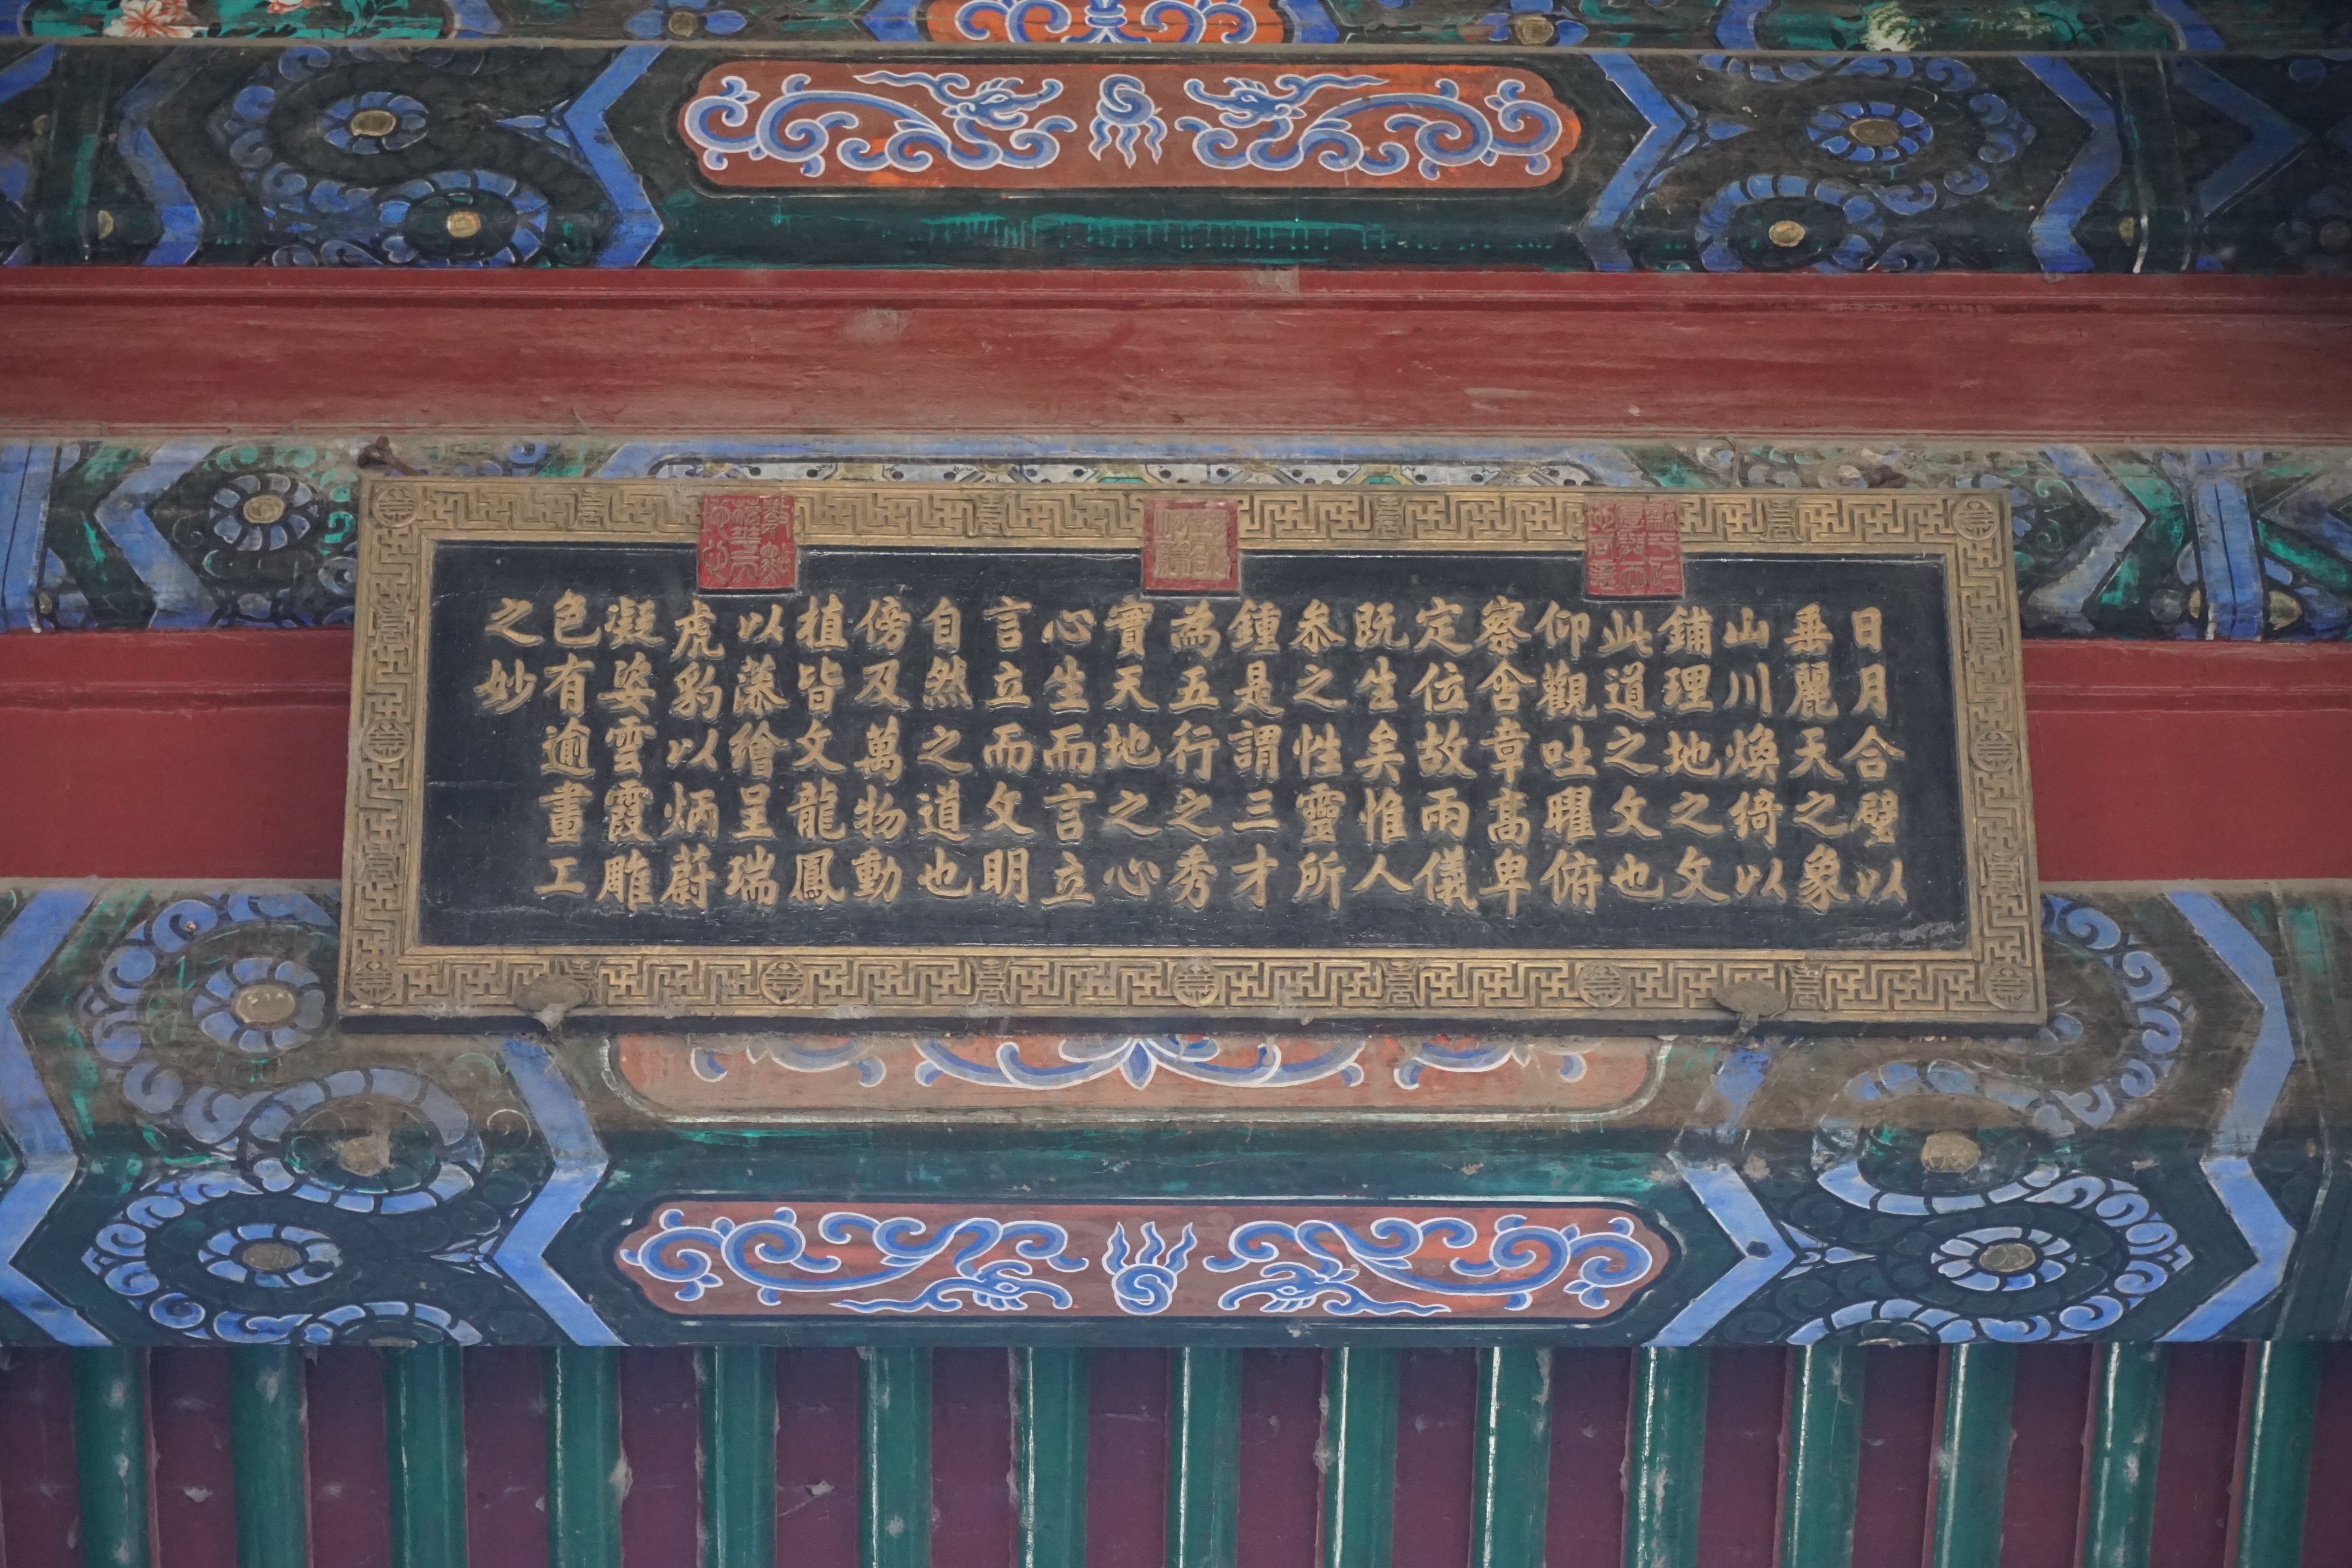 日月合璧以
垂麗天之象
山川煥綺以
鋪理地之文
此道之文也
仰觀吐曜俯
察含章高卑
定位故兩儀
既生矣惟人
叅之性靈所
鍾是謂三才
為五行之秀
實天地之心
心生而言立
言立而文明
自然之道也
傍及萬物動
植皆文龍鳳
以藻繪呈瑞
虎豹以炳蔚
凝姿雲霞雕
色有逾畫工
之妙